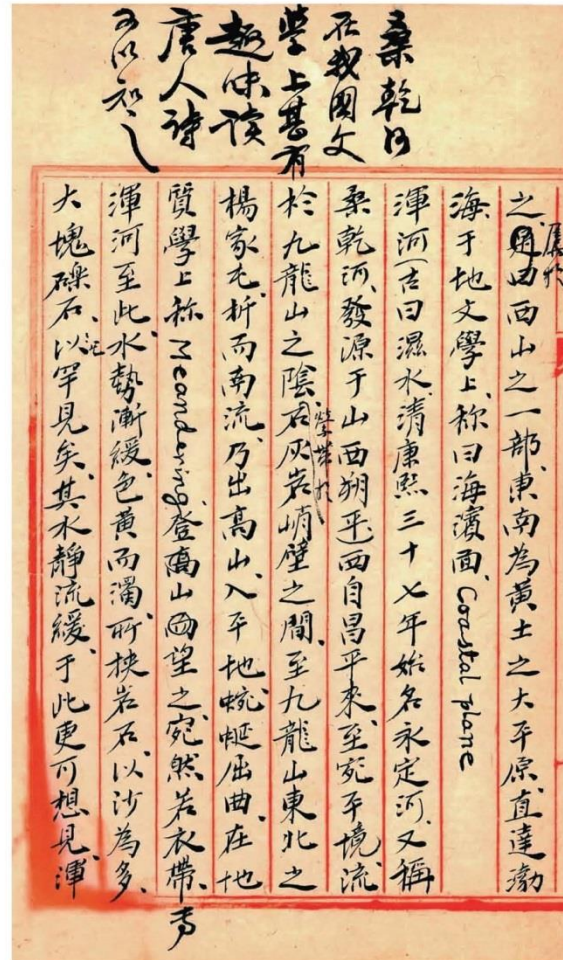 桑乾河
在我國文
學上甚有
趣味讀
唐人詩
可以知之
之西山之一部、東南為黃土之大平原、直達渤
屬於
海、于地文學上、称曰海濱面、Coastal plane
渾河（古曰濕水、清康熙三十七年始名永定河、又稱
桑乾河、發源于山西朔平、西自昌平來、至宛平境、流
於九龍山之陰、石灰岩峭壁之間、至九龍山東北之
縈帶於
楊家屯、折而南流、乃出高山、入平地、蜿蜒屈曲、在地
質學上称Meandering、登高山回望之、宛然若衣帶、
渾河至此、水勢漸緩、色黃而濁、所挾岩石、以沙為多、
大塊礫石、以罕見矣、其水靜流緩、于此更可想見、渾
泥